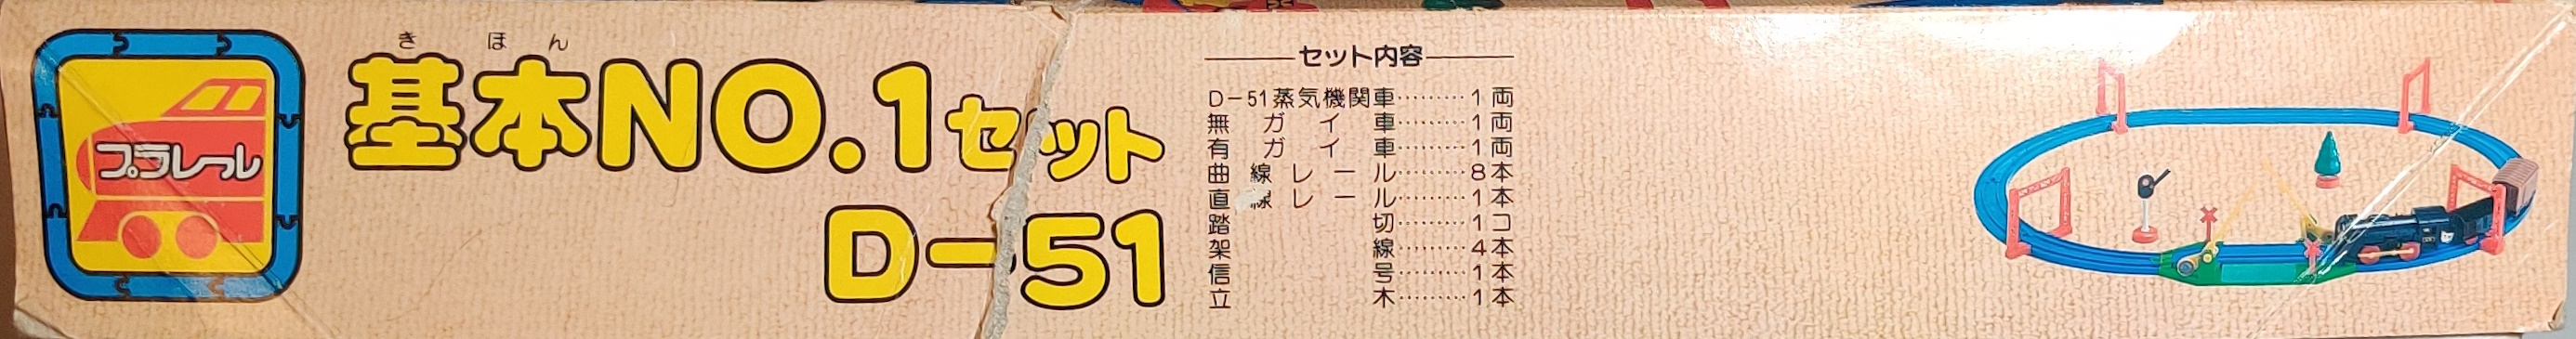 プラレール
きほん
基本NO.1セット
D-51
セット内容
D-51蒸気機関車………1両
無ガイ車………1両
有ガイ車………1両
曲線レール………8本
直線レール………1本
踏切………1コ
架線………4本
信号………1本
立木………1本